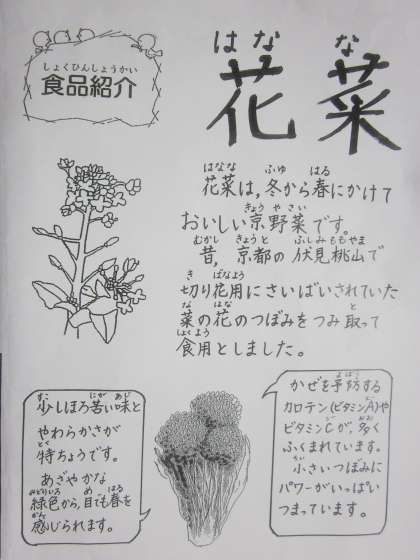 しょくひんしょうかい
食品紹介
はな な
花菜
はなな ふゆ はる
花菜は,冬から春にかけて
きょう やさい
おいしい京野菜です。
むかし きょうと ふしみももやま
昔,京都の伏見桃山で
き ばなよう
切り花用にさいばいされていた
な はな と
菜の花のつぼみをつみ取って
しょくよう
食用としました。
すこ にが あじ
少しほろ苦い味と
やわらかさが
とく
特ちょうです。
あざやかな
みどりいろ め はる
緑色から,目でも春を
かん
感じられます。
よぼう
かぜを予防する
カロテン(ビタミンA)や
おお
ビタミンCが,多く
ふくまれています。
ちい
小さいつぼみに
パワーがいっぱい
つまっています。